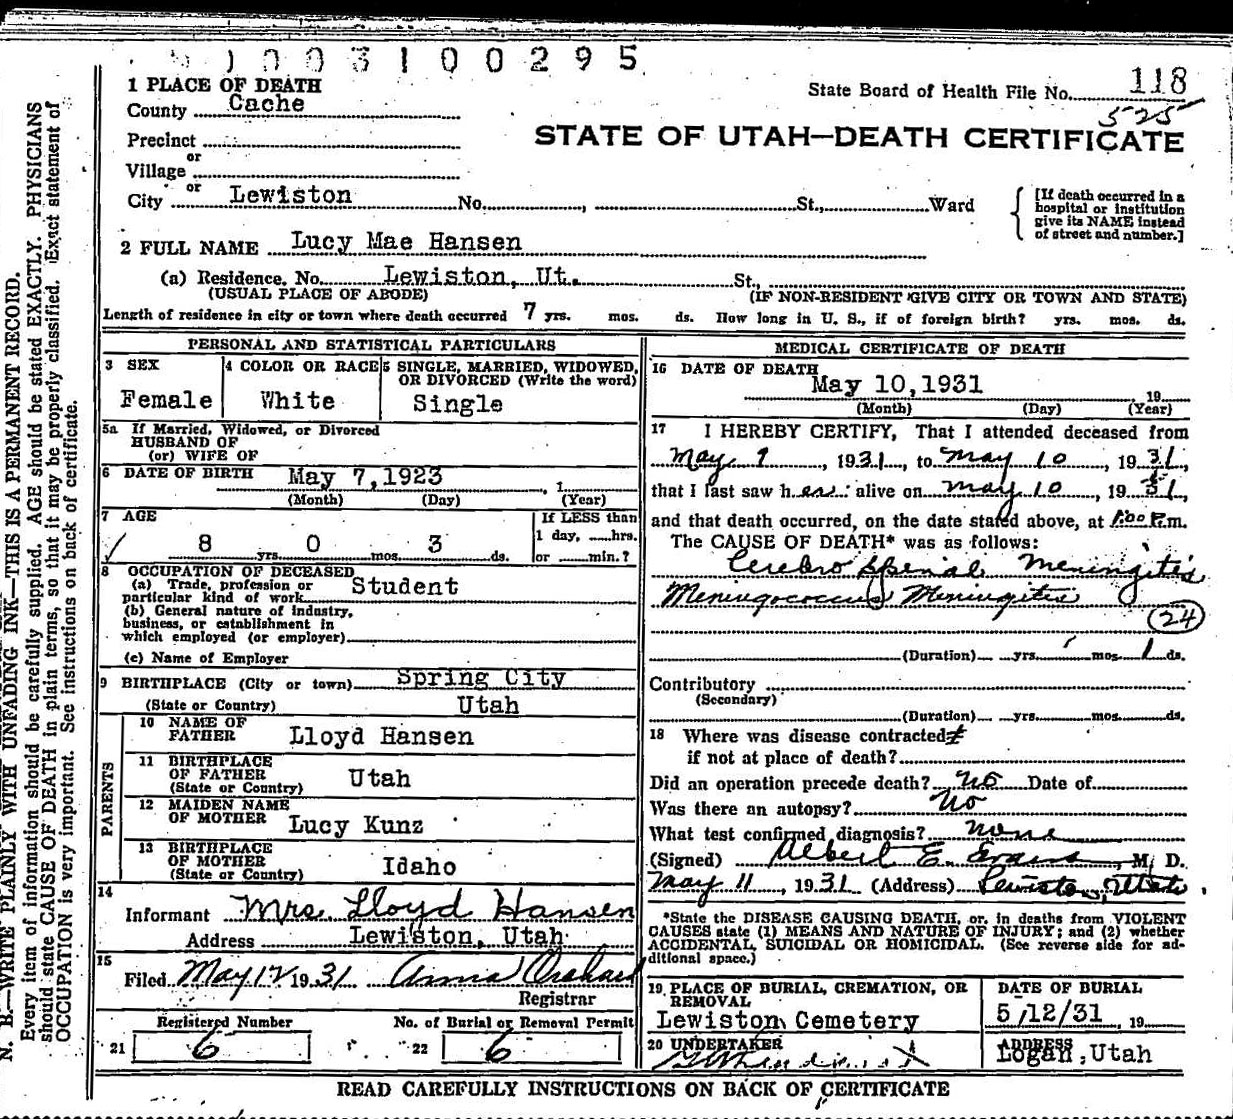 1003100295
1 PLACE OF DEATH
State Board of Health File No. 118
County Cache
525
STATE OF UTAH—DEATH CERTIFICATE
Precinct
or
Village
or
City Lewiston No. , St., Ward
[If death occurred in a hospital or institution give its NAME instead of street and number.]
2 FULL NAME Lucy Mae Hansen
(a) Residence. No. Lewiston, Ut. St.,
(USUAL PLACE OF ABODE) (IF NON-RESIDENT GIVE CITY OR TOWN AND STATE)
Length of residence in city or town where death occurred 7 yrs. mos. ds. How long in U. S., if of foreign birth? yrs. mos. ds.
PERSONAL AND STATISTICAL PARTICULARS
3 SEX
Female
4 COLOR OR RACE
White
5 SINGLE, MARRIED, WIDOWED,
OR DIVORCED (Write the word)
Single
5a If Married, Widowed, or Divorced
HUSBAND OF
(or) WIFE OF
6 DATE OF BIRTH May 7,1923 , 1
(Month) (Day) (Year)
7 AGE
8 yrs. 0 mos. 3 ds.
If LESS than
1 day, hrs.
or min.?
8 OCCUPATION OF DECEASED
(a) Trade, profession or
particular kind of work Student
(b) General nature of industry,
business, or establishment in
which employed (or employer)
(c) Name of Employer
9 BIRTHPLACE (City or town) Spring City
(State or Country) Utah
PARENTS
10 NAME OF
FATHER Lloyd Hansen
11 BIRTHPLACE
OF FATHER
(State or Country) Utah
12 MAIDEN NAME
OF MOTHER Lucy Kunz
13 BIRTHPLACE
OF MOTHER
(State or Country) Idaho
14
Informant Mrs Lloyd Hansen
Address Lewiston, Utah
15
Filed May 12 1931 Anna
Registrar
Registered Number
21 6
No. of Burial or Removal Permit
22 6
MEDICAL CERTIFICATE OF DEATH
16 DATE OF DEATH
May 10,1931 19
(Month) (Day) (Year)
17 I HEREBY CERTIFY, That I attended deceased from
May 9, 1931, to May 10, 1931,
that I last saw her alive on May 10, 1931,
and that death occurred, on the date stated above, at 1:00 P.m.
The CAUSE OF DEATH* was as follows:
Cerebro Spinal Meningitis
Meningococcus Meningitis
24
(Duration) yrs. mos. 1 ds.
Contributory
(Secondary)
(Duration) yrs. mos. ds.
18 Where was disease contracted
if not at place of death?
Did an operation precede death? No Date of
Was there an autopsy? No
What test confirmed diagnosis? None
(Signed) Albert E. Evans, M. D.
May 11, 1931 (Address) Lewiston, Utah.
*State the DISEASE CAUSING DEATH, or, in deaths from VIOLENT
CAUSES state (1) MEANS AND NATURE OF INJURY; and (2) whether
ACCIDENTAL, SUICIDAL OR HOMICIDAL. (See reverse side for ad-
ditional space.)
19 PLACE OF BURIAL, CREMATION, OR
REMOVAL
Lewiston Cemetery
DATE OF BURIAL
5/12/31, 19
20 UNDERTAKER
ADDRESS
Logan, Utah
READ CAREFULLY INSTRUCTIONS ON BACK OF CERTIFICATE
N. B.—WRITE PLAINLY WITH UNFADING INK—THIS IS A PERMANENT RECORD.
Every item of information should be carefully supplied. AGE should be stated EXACTLY. PHYSICIANS
should state CAUSE OF DEATH in plain terms, so that it may be properly classified. Exact statement of
OCCUPATION is very important. See instructions on back of certificate.